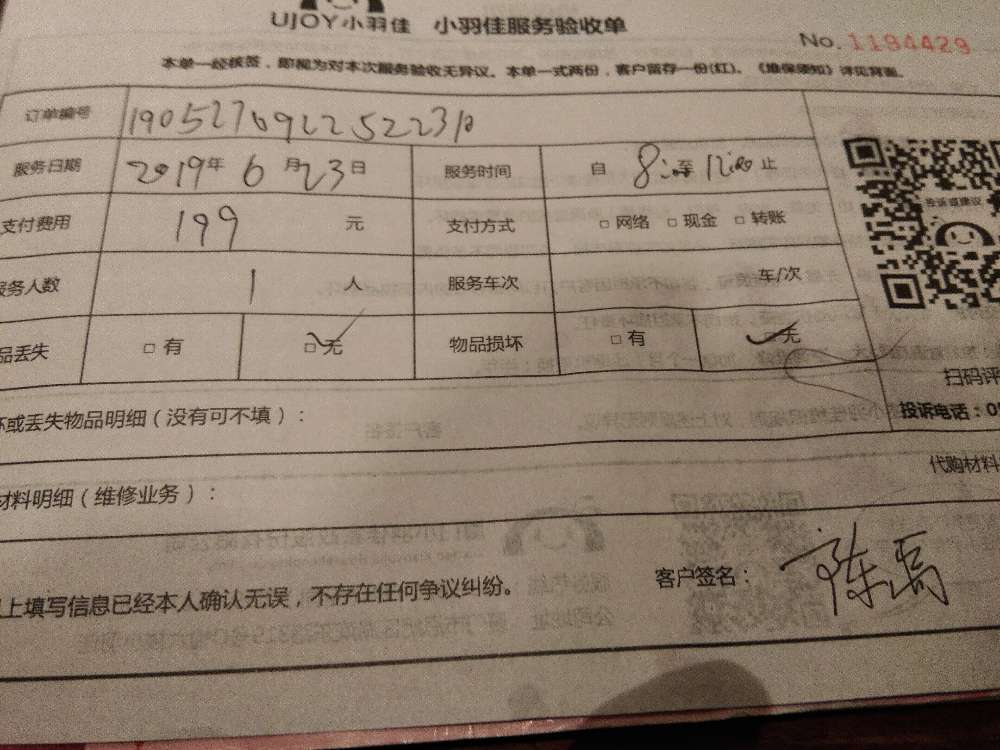 UJOY小羽佳 小羽佳服务验收单
No. 1194429
本单一经核签，即视为对本次服务验收无异议。本单一式两份，客户留存一份(红)。《维保须知》详见背面。
订单编号
服务日期 2019年 6月23日 服务时间 自 8:00至 12:00 止
支付费用 199 元 支付方式 □ 网络 □ 现金 □ 转账
服务人数 1 人 服务车次 车/次
品丢失 □ 有 □ 无 物品损坏 □ 有 □ 无
投诉或建议
扫码评
坏或丢失物品明细（没有可不填）：
投诉电话：0
材料明细（维修业务）：
代购材料
以上填写信息已经本人确认无误，不存在任何争议纠纷。
客户签名：陈禹